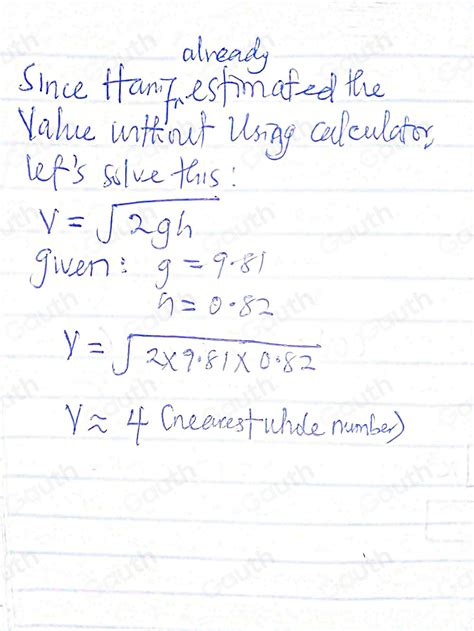 already
Since Hanifa estimated the
Value without Using calculator,
let's solve this:
V = √2gh
given: g = 9.81
h = 0.82
V = √2×9.81×0.82
V ≈ 4 (nearest whole number)
Gauth